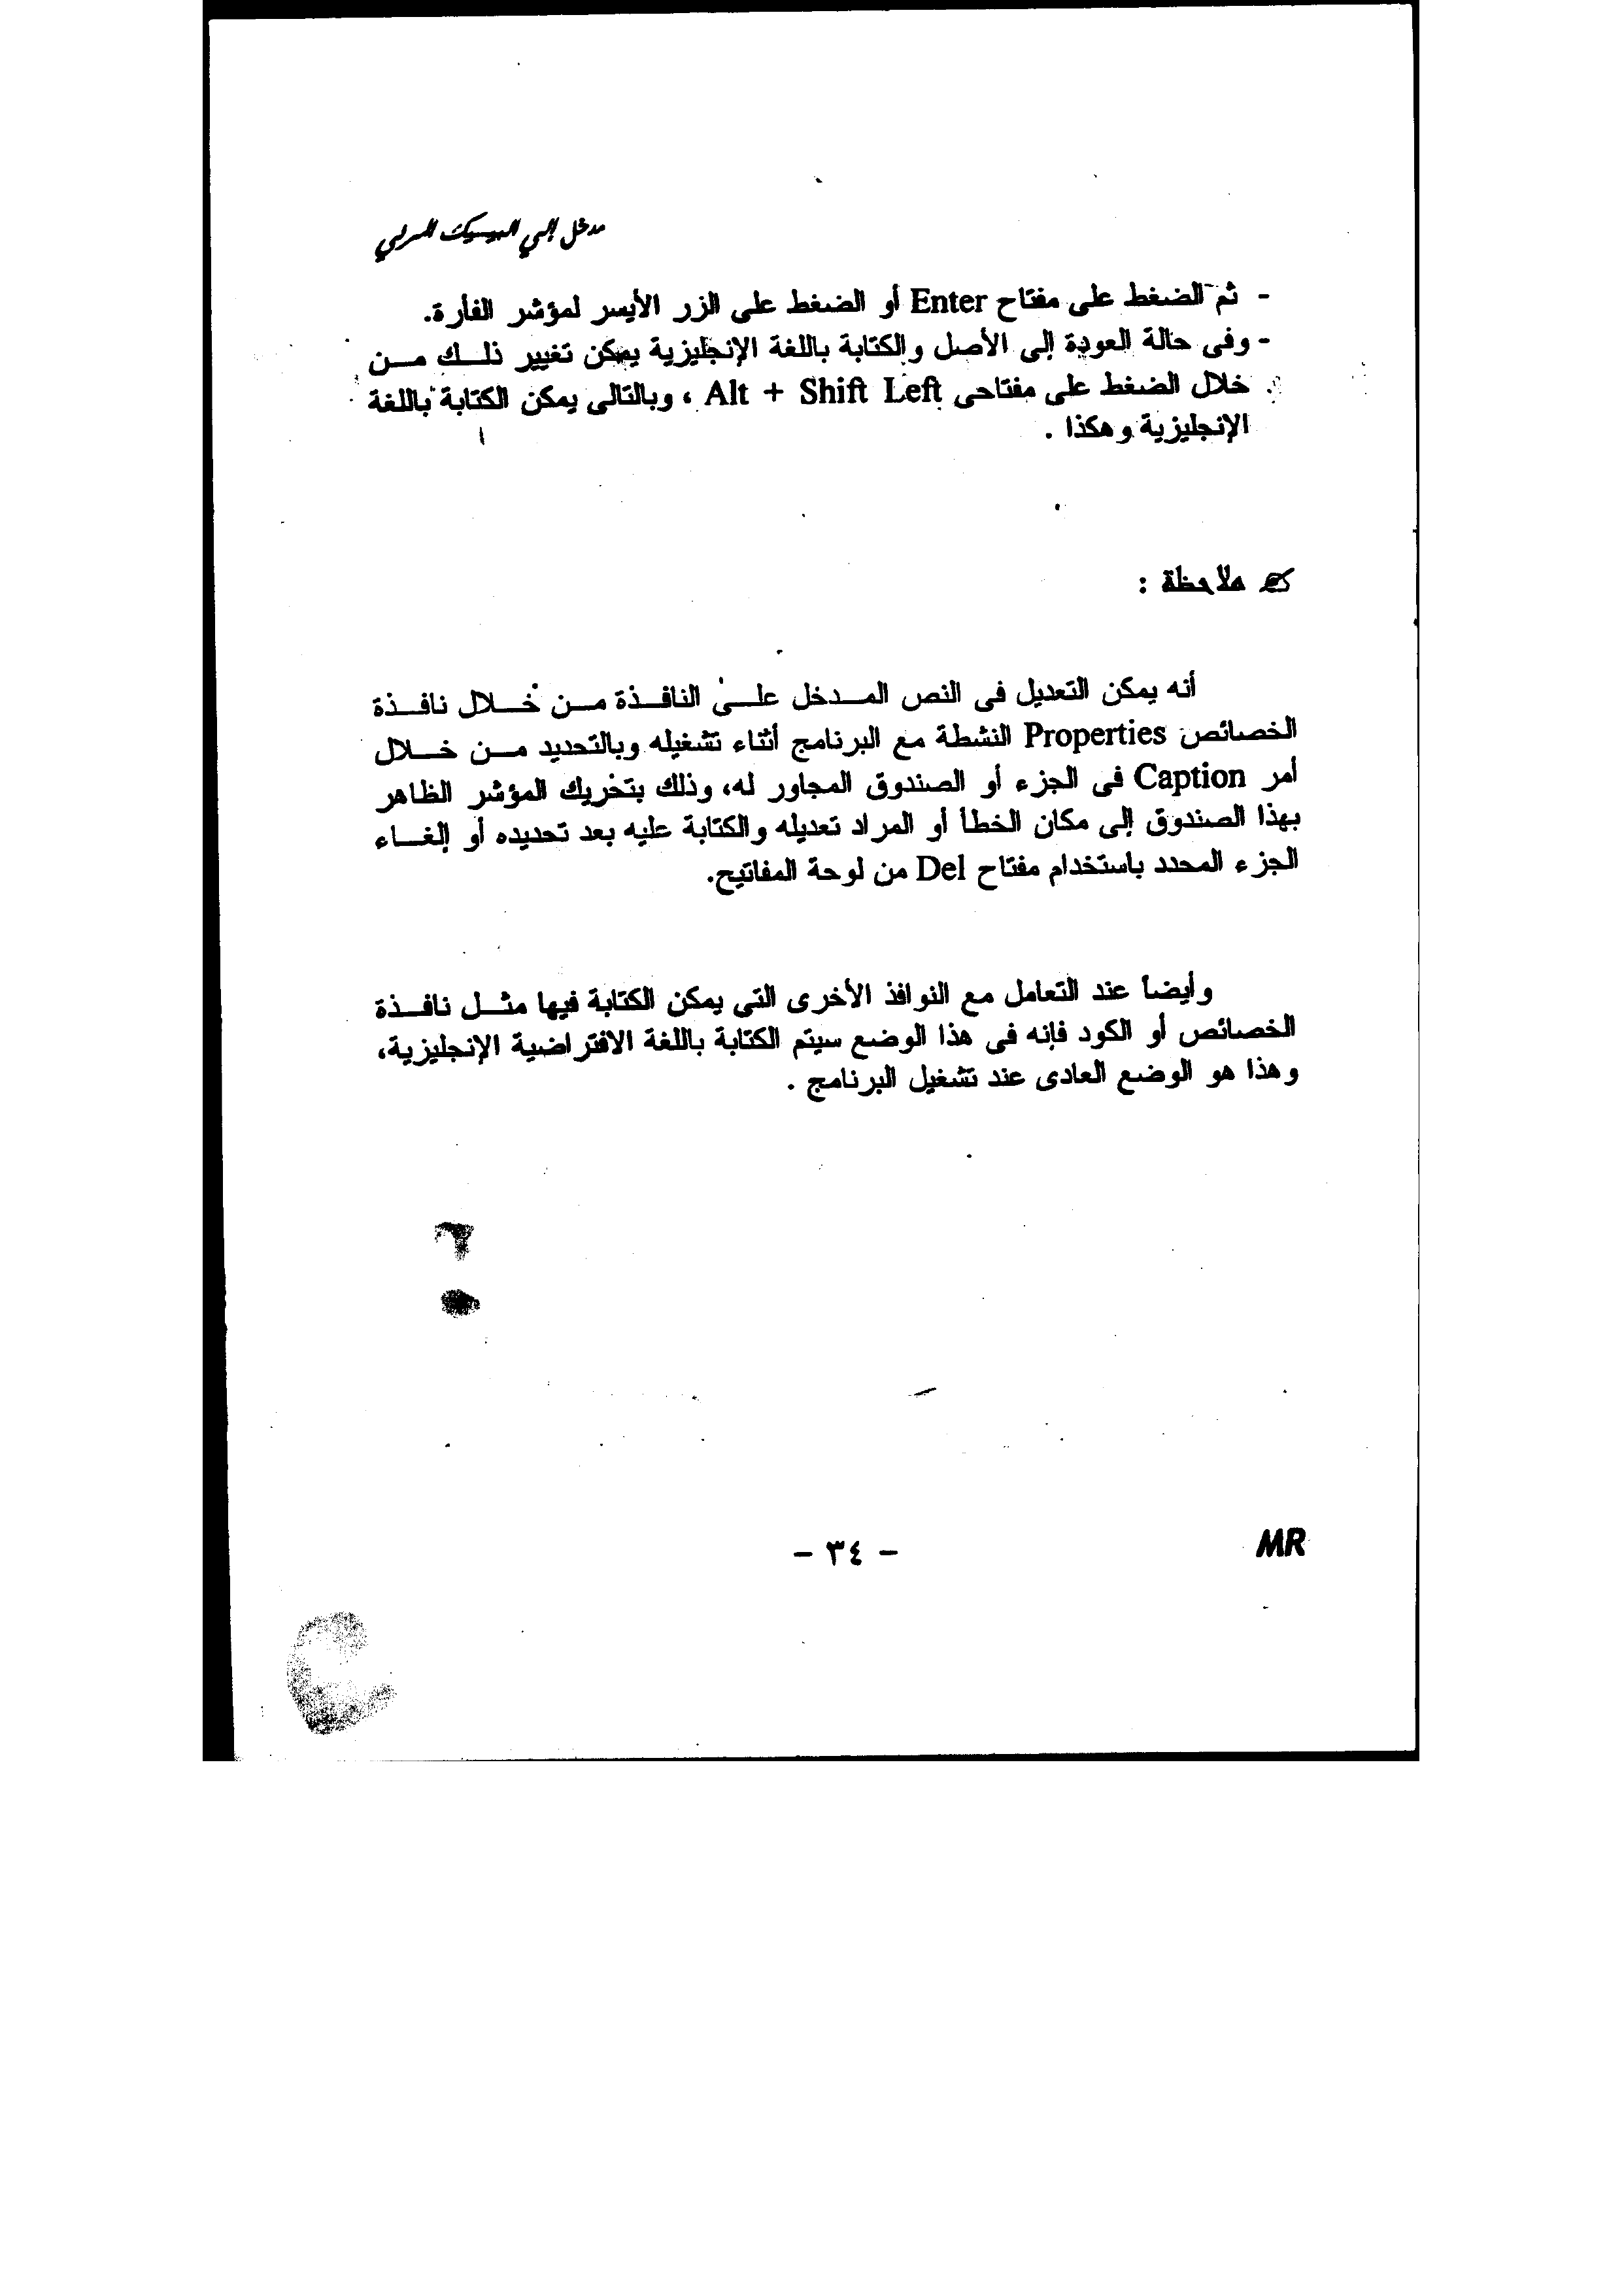 مدخل إلي البيسيك المرئي
- ثم الضغط على مفتاح Enter أو الضغط على الزر الأيسر لمؤشر الفأرة.
- وفى حالة العودة إلى الأصل والكتابة باللغة الإنجليزية يمكن تغيير ذلك من
خلال الضغط على مفتاحى Alt + Shift Left ، وبالتالى يمكن الكتابة باللغة
الإنجليزية وهكذا .
ملاحظة :
أنه يمكن التعديل فى النص المدخل على النافذة من خلال نافذة
الخصائص Properties النشطة مع البرنامج أثناء تشغيله وبالتحديد من خلال
أمر Caption فى الجزء أو الصندوق المجاور له، وذلك بتحريك المؤشر الظاهر
بهذا الصندوق إلى مكان الخطأ أو المراد تعديله والكتابة عليه بعد تحديده أو إلغاء
الجزء المحدد باستخدام مفتاح Del من لوحة المفاتيح.
وأيضاً عند التعامل مع النوافذ الأخرى التى يمكن الكتابة فيها مثل نافذة
الخصائص أو الكود فإنه فى هذا الوضع سيتم الكتابة باللغة الافتراضية الإنجليزية،
وهذا هو الوضع العادى عند تشغيل البرنامج .
MR
- ٣٤ -